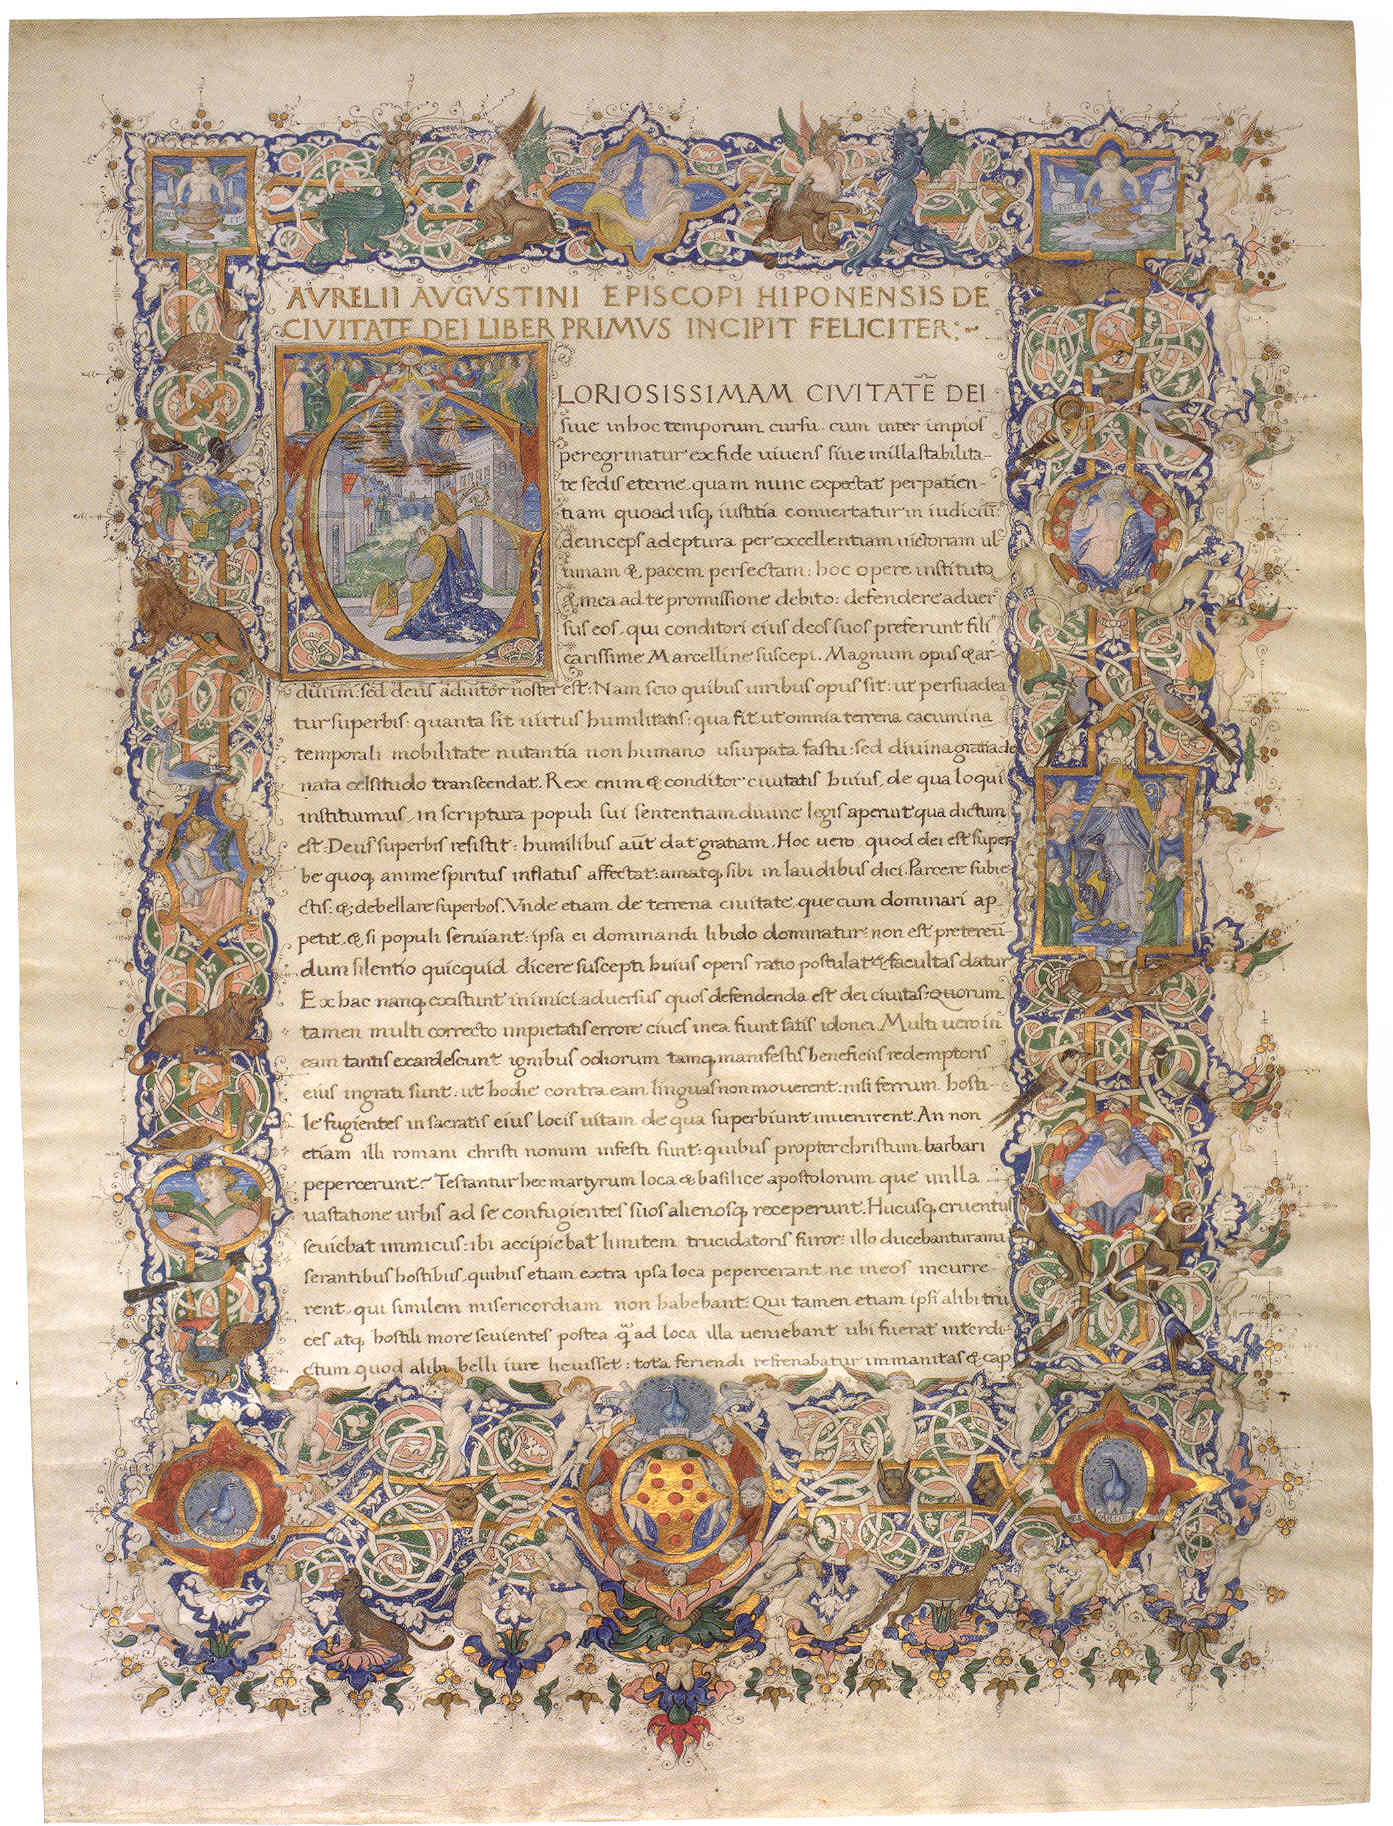 AVRELII AVGVSTINI EPISCOPI HIPONENSIS DE
CIVITATE DEI LIBER PRIMVS INCIPIT FELICITER:~
GLORIOSISSIMAM CIVITATE̅ DEI
siue in hoc temporum cursu. cum inter impios
peregrinatur ex fide uiuens siue in illa stabilita-
te sedis eterne. quam nunc expectat per patien-
tiam quoad usq, iustitia conuertatur in iudiciu̅.
deinceps adeptura per excellentiam uictoriam ul-
timam & pacem perfectam: hoc opere instituto
& mea ad te promissione debito: defendere aduer
sus eos, qui conditori eius deos suos preferunt fili
carissime Marcelline suscepi. Magnum opus & ar-
duum: sed deus adiutor noster est: Nam scio quibus uiribus opus sit: ut persuadea
tur superbis: quanta sit uirtus humilitatis: qua fit ut omnia terrena cacumina
temporali mobilitate nutantia non humano usurpata fastu: sed diuina gratia do
nata celsitudo transcendat. Rex enim & conditor ciuitatis huius, de qua loqui
instituimus, in scriptura populi sui sententiam diuine legis aperuit qua dictum
est: Deus superbis resistit: humilibus aut̅ dat gratiam. Hoc uero, quod dei est super
be quoq, anime spiritus inflatus affectat: amatq, sibi in laudibus dici. Parcere subie
ctis: &; debellare superbos. Vnde etiam de terrena ciuitate, que cum dominari ap-
petit, & si populi seruiant: ipsa ei dominandi libido dominatur: non est pretereu̅
dum silentio quicquid dicere suscepti huius operis ratio postulat & facultas datur
Ex hac nanq, existunt inimici: aduersus quos defendenda est dei ciuitas: Quorum
tamen multi correcto impietatis errore ciues in ea fiunt satis idonei. Multi uero in
eam tantis exardescunt ignibus odiorum tamq, manifestis beneficiis redemptoris
eius ingrati sunt: ut hodie contra eam linguas non mouerent: nisi ferrum hosti-
le fugientes in sacratis eius locis uitam de qua superbiunt inuenirent. An non
etiam illi romani christi nomini infesti sunt: quibus propter christum barbari
pepercerunt~ Testantur hec martyrum loca & basilice apostolorum que in illa
uastatione urbis ad se confugientes suos alienosq, receperunt. Hucusq, cruentus
seuiebat inimicus: ibi accipiebat limitem trucidatoris furor: illo ducebantur a mi
serantibus hostibus, quibus etiam extra ipsa loca pepercerant ne in eos incurre-
rent, qui similem misericordiam non habebant: Qui tamen etiam ipsi alibi tru
ces atq, hostili more seuientes postea q̅ ad loca illa ueniebant ubi fuerat interdi-
ctum quod alibi belli iure licuisset: tota feriendi refrenabatur immanitas & cap